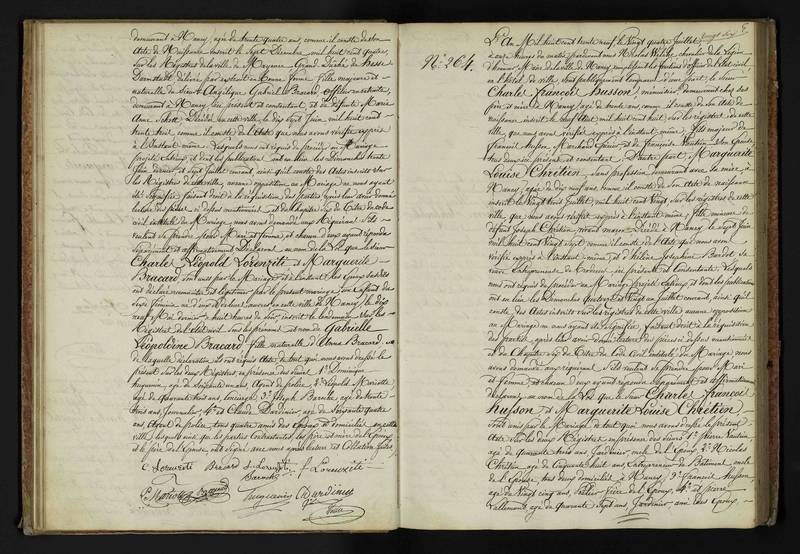 demeurant à Nancy, âgé de trente quatre ans, comme il conste de son
acte de Naissance inscrit le Sept Décembre mil huit cent quatre,
sur les Registres de la ville de Mayence Grand Duché de Hesse
fille majeure et
naturelle de Gabriel Bracard, officier en retraite,
demeurant à Nancy ici présent et consentant, et de défunte Marie
Anne Décédée en cette ville, le dix Sept Juin mil huit cent
trente huit, comme il conste de l'acte que nous avons vérifié exprès
à l'instant même. Lesquels nous ont requis de procéder au Mariage
projeté entr'eux, et dont les publications ont eu lieu les Dimanches trente
Juin dernier et sept Juillet courant, ainsi qu'il conste des actes inscrits sur
les Registres de cette ville, aucune opposition au Mariage ne nous ayant
été signifiée faisant droit à la réquisition des parties, après leur avoir donné
lecture des pièces ci dessus mentionnées et du Chapitre Six du Titre du code
civil intitulé du Mariage, nous avons demandé aux Requérans s'ils
veulent se prendre pour Mari et femme, et chacun d'eux ayant répondu
séparément et affirmativement Déclarons au nom de la Loi que le Sieur
Charles Léopold Lorenziti et Marguerite
Bracard, sont unis par le Mariage et à l'instant les Epoux susdits
ont déclaré reconnaître et légitimer par le présent mariage, un Enfant du
Sexe féminin né d'eux et déclaré en cette ville de Nancy, le dix
neuf Mai dernier à huit heures du Soir, inscrit le lendemain sur les
Registres de l'état civil sous les prénoms et nom de Gabrielle
Léopoldine Bracard, fille naturelle d'Anne Bracard, de
laquelle déclaration ils ont requis acte, de tout quoi nous avons dressé le
présent sur les deux Registres, en présence des Sieurs, 1° Dominique
Huguenin, âgé de soixante un ans, Agent de police, 2° Léopold Mariotte
âgé de quarante trois ans, Concierge, 3° Joseph Barnet, âgé de trente
trois ans, Journalier, 4° et Claude Dardinier âgé de soixante quatre
ans, Agent de police, tous quatre amis des Epoux et domiciliés en cette
ville, lesquels ainsi que les parties contractantes, les père et mère de l'Epoux
et le père de l'Epouse, ont signé avec nous après lecture et Collation faites,
C. Lorenziti Bracard Lorenziti Lorenziti
Barnet
Mariotte Bracard Huguenin Dardinier
N° 264.
L'An Mil huit cent trente neuf, le Vingt quatre Juillet
à onze heures du matin, pardevant nous Nicolas chevalier de la Légion
d'honneur, Maire de la ville de Nancy remplissant les fonctions d'officier de l'état civil
en l'hôtel de ville, sont publiquement comparus, d'une part, le Sieur
Charles François Husson, menuisier, demeurant chez ses
père et mère à Nancy, âgé de trente ans, comme il conste de son acte de
naissance inscrit le neuf Août mil huit cent huit sur les registres de cette
ville, que nous avons vérifié exprès à l'instant même, fils majeur de
François Husson, Marchand Epicier et de Françoise son Epouse
tous deux ici présens et consentans. D'autre part Marguerite
Louise Chrétien, sans profession, demeurant avec sa mère à
Nancy, âgée de dix neuf ans, comme il conste de son acte de naissance
inscrit le Vingt trois Juillet mil huit cent Vingt, sur les registres de cette
ville, que nous avons vérifié exprès à l'instant même, fille mineure de
défunt Joseph Chrétien, vivant Décédé à Nancy, le sept Juin
mil huit cent Vingt sept comme il conste de l'acte que nous avons
vérifié exprès à l'instant même, et d'Hélène Joséphine Bardot sa
veuve, Entrepreneuse ici présente et consentante. Lesquels
nous ont requis de procéder au Mariage projeté entr'eux, et dont les publications
ont eu lieu les Dimanches quatorze et Vingt un Juillet courant, ainsi qu'il
conste des actes inscrits sur les registres de cette ville, aucune opposition
au Mariage ne nous ayant été signifiée, faisant droit à la réquisition
des parties, après leur avoir donné lecture des pièces ci dessus mentionnées
et du Chapitre Six du Titre du Code Civil intitulé du Mariage nous
avons demandé aux requérans s'ils veulent se prendre pour Mari
et femme et chacun d'eux ayant répondu séparément et affirmativement
déclarons au nom de la Loi que le Sieur Charles François
Husson et Marguerite Louise Chrétien,
sont unis par le Mariage de tout quoi nous avons dressé le présent
Acte sur les deux Registres en présence des Sieurs 1° Pierre
âgé de quarante trois ans Jardinier, oncle de l'Epoux, 2° Nicolas
Chrétien, âgé de Cinquante huit ans, Entrepreneur de Bâtimens, oncle
de l'Epouse, tous deux domiciliés à Nancy, 3° François Husson,
âgé de vingt cinq ans, frère de l'Epoux, 4° et Pierre
Lallemant, âgé de quarante Sept ans, Jardinier, ami des Epoux,